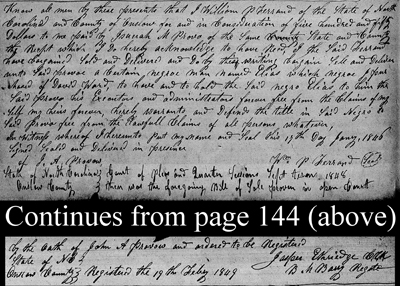 Know all men by these presents that I William P Ferrand of the State of North
Carolina and County of Onslow for and in Consideration of five hundred and fifty
Dollars to me paid by Josueah M Provo of the Same County State and County
the Right which I do hereby acknowledge to have Recd I the Said Ferrand
have bargained Sold and Delivered and Do by these writing bargain Sell and Deliver
unto Said Provoe a Certain negroe man named Elias which negroe I
of David Ward, to have and to hold the Said negro Elias to him the
Said Provo his Executors, and administrators forever free from the Claims of my
Self my heirs forever, hereby warrants and Defends the title in Said Negro to
Said Provo free from the Lawfull Claims of all persons whatever,
In Witness whereof I hereunto Put my name and Seal this 19th Day of Jany 1846
Signed Sealed and Delivered in presence
of J. A. Provow Wm P. Ferrand Seal
State of North Carolina Court of Pleas and Quarter Sessions Sept Term, 1848
Onslow County then was the foregoing Bill of Sale proven in open Court
Continues from page 144 (above)
by the oath of John A Provow and ordered to be Registered
State of NC Jasper Etheridge Clk
Onslow County Registered the 19th Feby 1849 B M Regstr